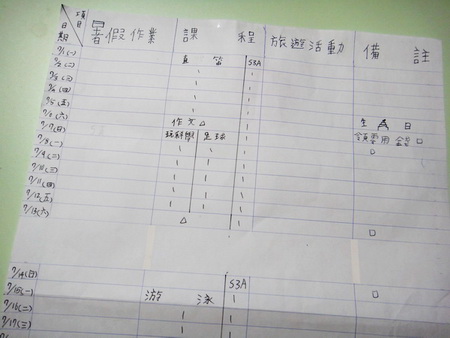 項目
日期 暑假作業 課程 旅遊活動 備註
7/1(一) 直笛 S3A
7/2(二) \ \
7/3(三) \ \
7/4(四) \ \
7/5(五) \ \
7/6(六) 作文△ 生日
7/7(日) 玩科學 足球 \ 領零用金 □
7/8(一) \ \ \ □
7/9(二) \ \ \
7/10(三) \ \ \
7/11(四) \ \ \
7/12(五) \ \ \
7/13(六) △ □
7/14(日) S3A
7/15(一) 游泳 \ □
7/16(二) \ \
7/17(三) \ \